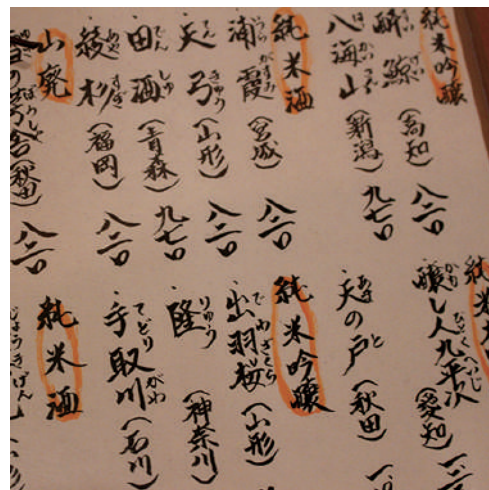 純米吟醸
酔鯨(高知) 八二〇
八海山(新潟) 九七〇
純米酒
浦霞(宮城) 八二〇
天弓(山形) 八二〇
田酒(青森) 九七〇
綾杉(福岡) 八二〇
山廃
(秋田) 八二〇
純米
醸し人九平次(愛知)
天の戸(秋田)
純米吟醸
出羽桜(山形)
隆(神奈川)
手取川(石川)
純米酒
じょうきげん